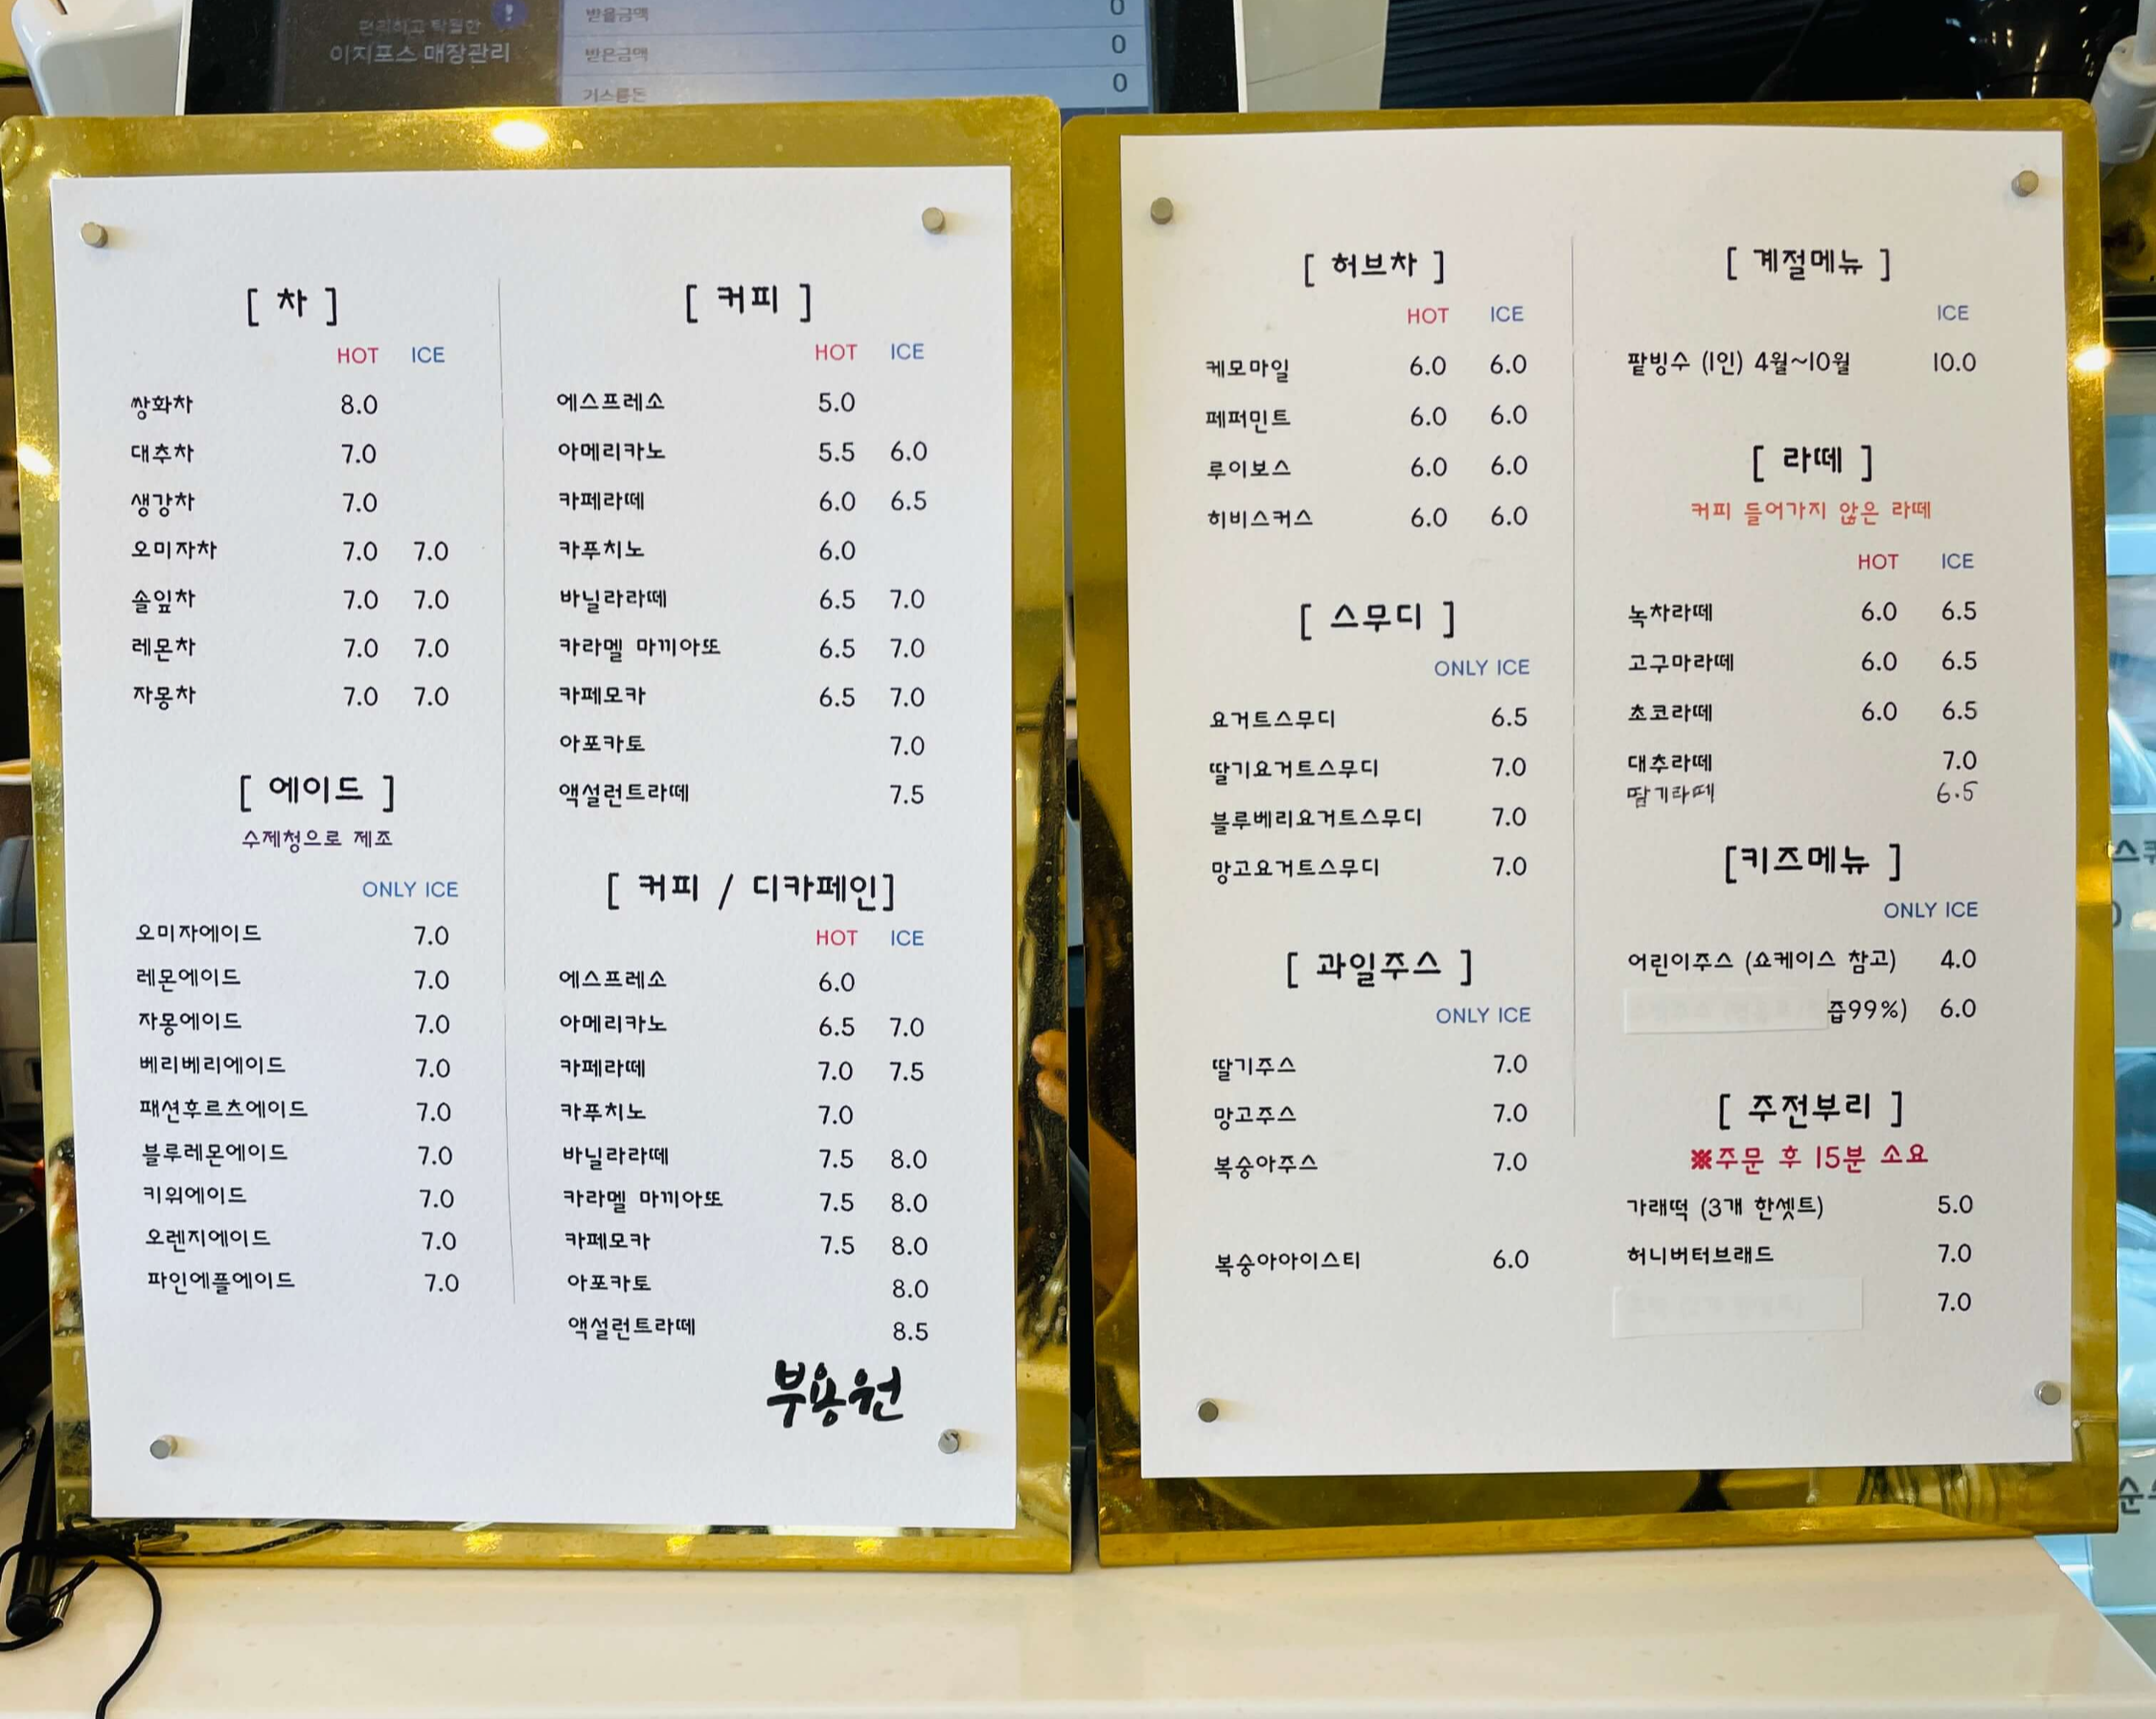 편리하고 탁월한
이지포스 매장관리
받을금액 0
받은금액 0
거스름돈 0
[ 차 ]
HOT ICE
쌍화차 8.0
대추차 7.0
생강차 7.0
오미자차 7.0 7.0
솔잎차 7.0 7.0
레몬차 7.0 7.0
자몽차 7.0 7.0
[ 에이드 ]
수제청으로 제조
ONLY ICE
오미자에이드 7.0
레몬에이드 7.0
자몽에이드 7.0
베리베리에이드 7.0
패션후르츠에이드 7.0
블루레몬에이드 7.0
키위에이드 7.0
오렌지에이드 7.0
파인에플에이드 7.0
[ 커피 ]
HOT ICE
에스프레소 5.0
아메리카노 5.5 6.0
카페라떼 6.0 6.5
카푸치노 6.0
바닐라라떼 6.5 7.0
카라멜 마끼아또 6.5 7.0
카페모카 6.5 7.0
아포카토 7.0
액설런트라떼 7.5
[ 커피 / 디카페인]
HOT ICE
에스프레소 6.0
아메리카노 6.5 7.0
카페라떼 7.0 7.5
카푸치노 7.0
바닐라라떼 7.5 8.0
카라멜 마끼아또 7.5 8.0
카페모카 7.5 8.0
아포카토 8.0
액설런트라떼 8.5
부용원
[ 허브차 ]
HOT ICE
케모마일 6.0 6.0
페퍼민트 6.0 6.0
루이보스 6.0 6.0
히비스커스 6.0 6.0
[ 스무디 ]
ONLY ICE
요거트스무디 6.5
딸기요거트스무디 7.0
블루베리요거트스무디 7.0
망고요거트스무디 7.0
[ 과일주스 ]
ONLY ICE
딸기주스 7.0
망고주스 7.0
복숭아주스 7.0
복숭아아이스티 6.0
[ 계절메뉴 ]
ICE
팥빙수 (1인) 4월~10월 10.0
[ 라떼 ]
커피 들어가지 않은 라떼
HOT ICE
녹차라떼 6.0 6.5
고구마라떼 6.0 6.5
초코라떼 6.0 6.5
대추라떼 7.0
딸기라떼 6.5
[키즈메뉴 ]
ONLY ICE
어린이주스 (쇼케이스 참고) 4.0
즙99%) 6.0
[ 주전부리 ]
※주문 후 15분 소요
가래떡 (3개 한셋트) 5.0
허니버터브래드 7.0
7.0